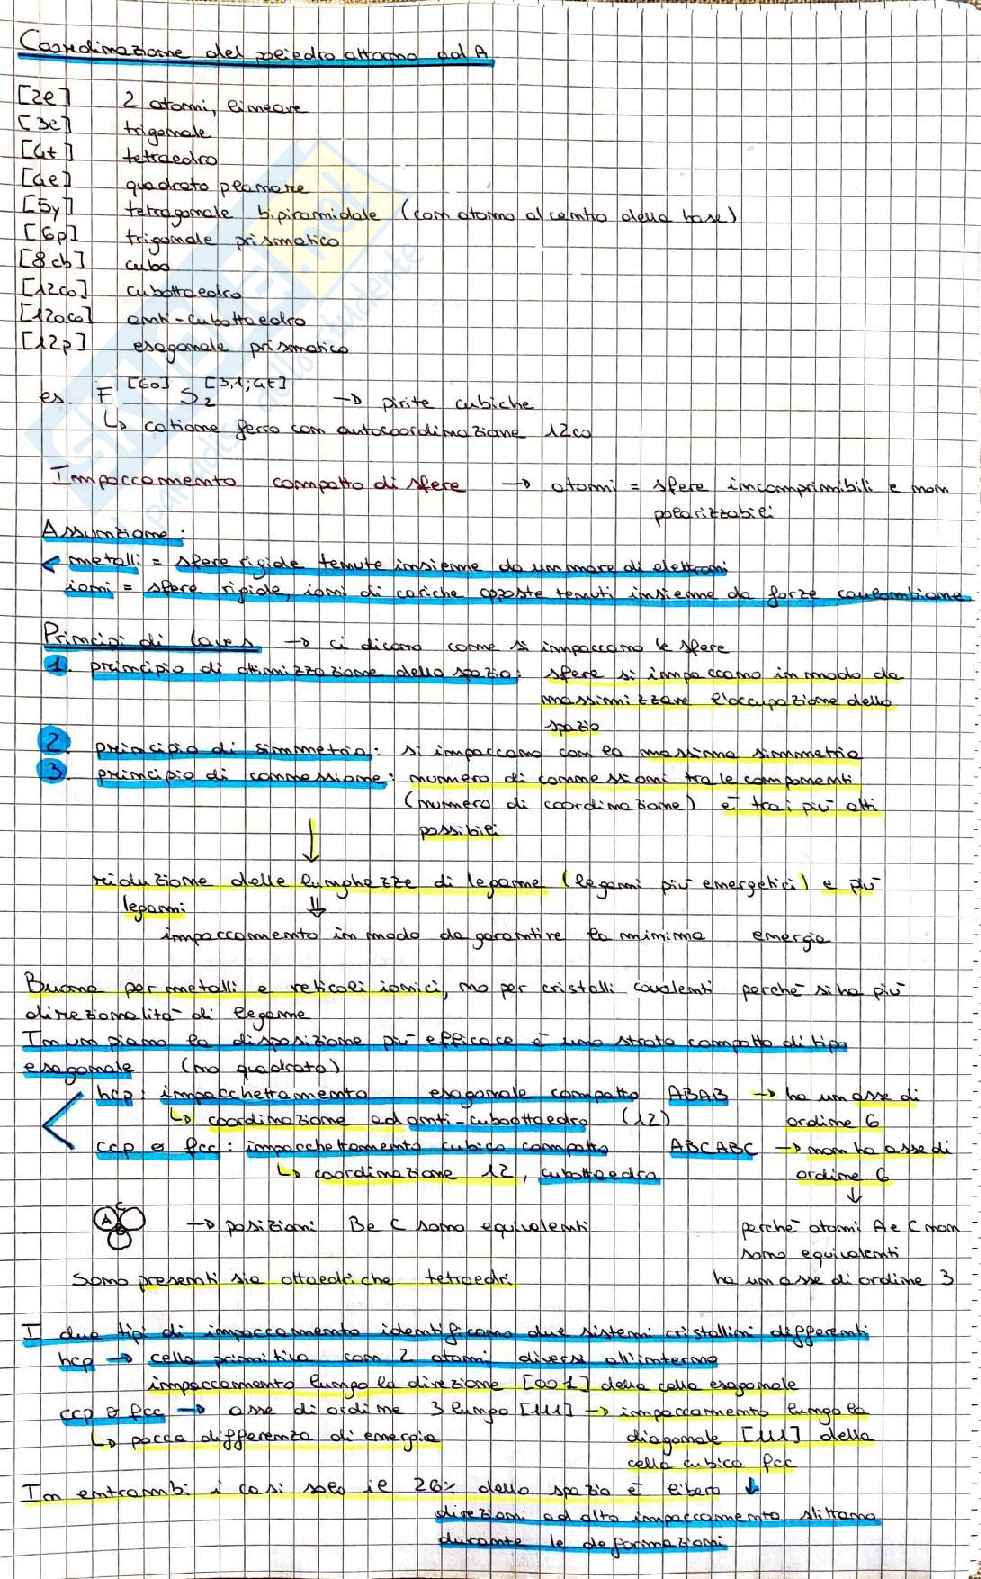 Coordinazione del poliedro attorno ad A
[2l] 2 atomi, lineare
[3l] trigonale
[4t] tetraedro
[4l] quadrato planare
[5y] tetragonale bipiramidale (con atomo al centro della base)
[6p] trigonale prismatico
[8cb] cubo
[12co] cubottaedro
[12aco] anti-cubottaedro
[12p] esagonale prismatico
es. F [6o] S2 [3,1;4t] → pirite cubiche
↳ catione ferro con autocoordinazione 12co
Impaccamento compatto di sfere → atomi = sfere incomprimibili e non
polarizzabili
Assunzione:
metalli = sfere rigide tenute insieme da un mare di elettroni
ioni = sfere rigide, ioni di cariche opposte tenuti insieme da forze coulombiane
Principi di Laves → ci dicono come si impaccano le sfere
1. principio di ottimizzazione dello spazio: sfere si impaccano in modo da
massimizzare l'occupazione dello
spazio
2. principio di simmetria: si impaccano con la massima simmetria
3. principio di connessione: numero di connessioni tra le componenti
(numero di coordinazione) è tra i più alti
possibili
↓
riduzione delle lunghezze di legame (legami più energetici) e più
legami ⇓
impaccamento in modo da garantire la minima energia
Buono per metalli e reticoli ionici, no per cristalli covalenti perché si ha più
direzionalità di legame
In un piano la disposizione più efficace è uno strato compatto di tipo
esagonale (no quadrato)
hcp: impacchettamento esagonale compatto ABAB → ha un asse di
↳ coordinazione ad anti-cubottaedro (12) ordine 6
ccp o fcc: impacchettamento cubico compatto ABCABC → non ha asse di
↳ coordinazione 12, cubottaedro ordine 6
↓
A → posizioni B e C sono equivalenti perché atomi A e C non
sono equivalenti
Sono presenti sia ottaedri che tetraedri ha un asse di ordine 3
I due tipi di impaccamento identificano due sistemi cristallini differenti
hcp → cella primitiva con 2 atomi diversi all'interno
impaccamento lungo la direzione [001] della cella esagonale
ccp o fcc → asse di ordine 3 lungo [111] → impaccamento lungo la
↳ pocca differenza di energia diagonale [111] della
cella cubica fcc
In entrambi i casi solo il 26% dello spazio è libero ↓
direzioni ad alto impaccamento slittano
durante le deformazioni